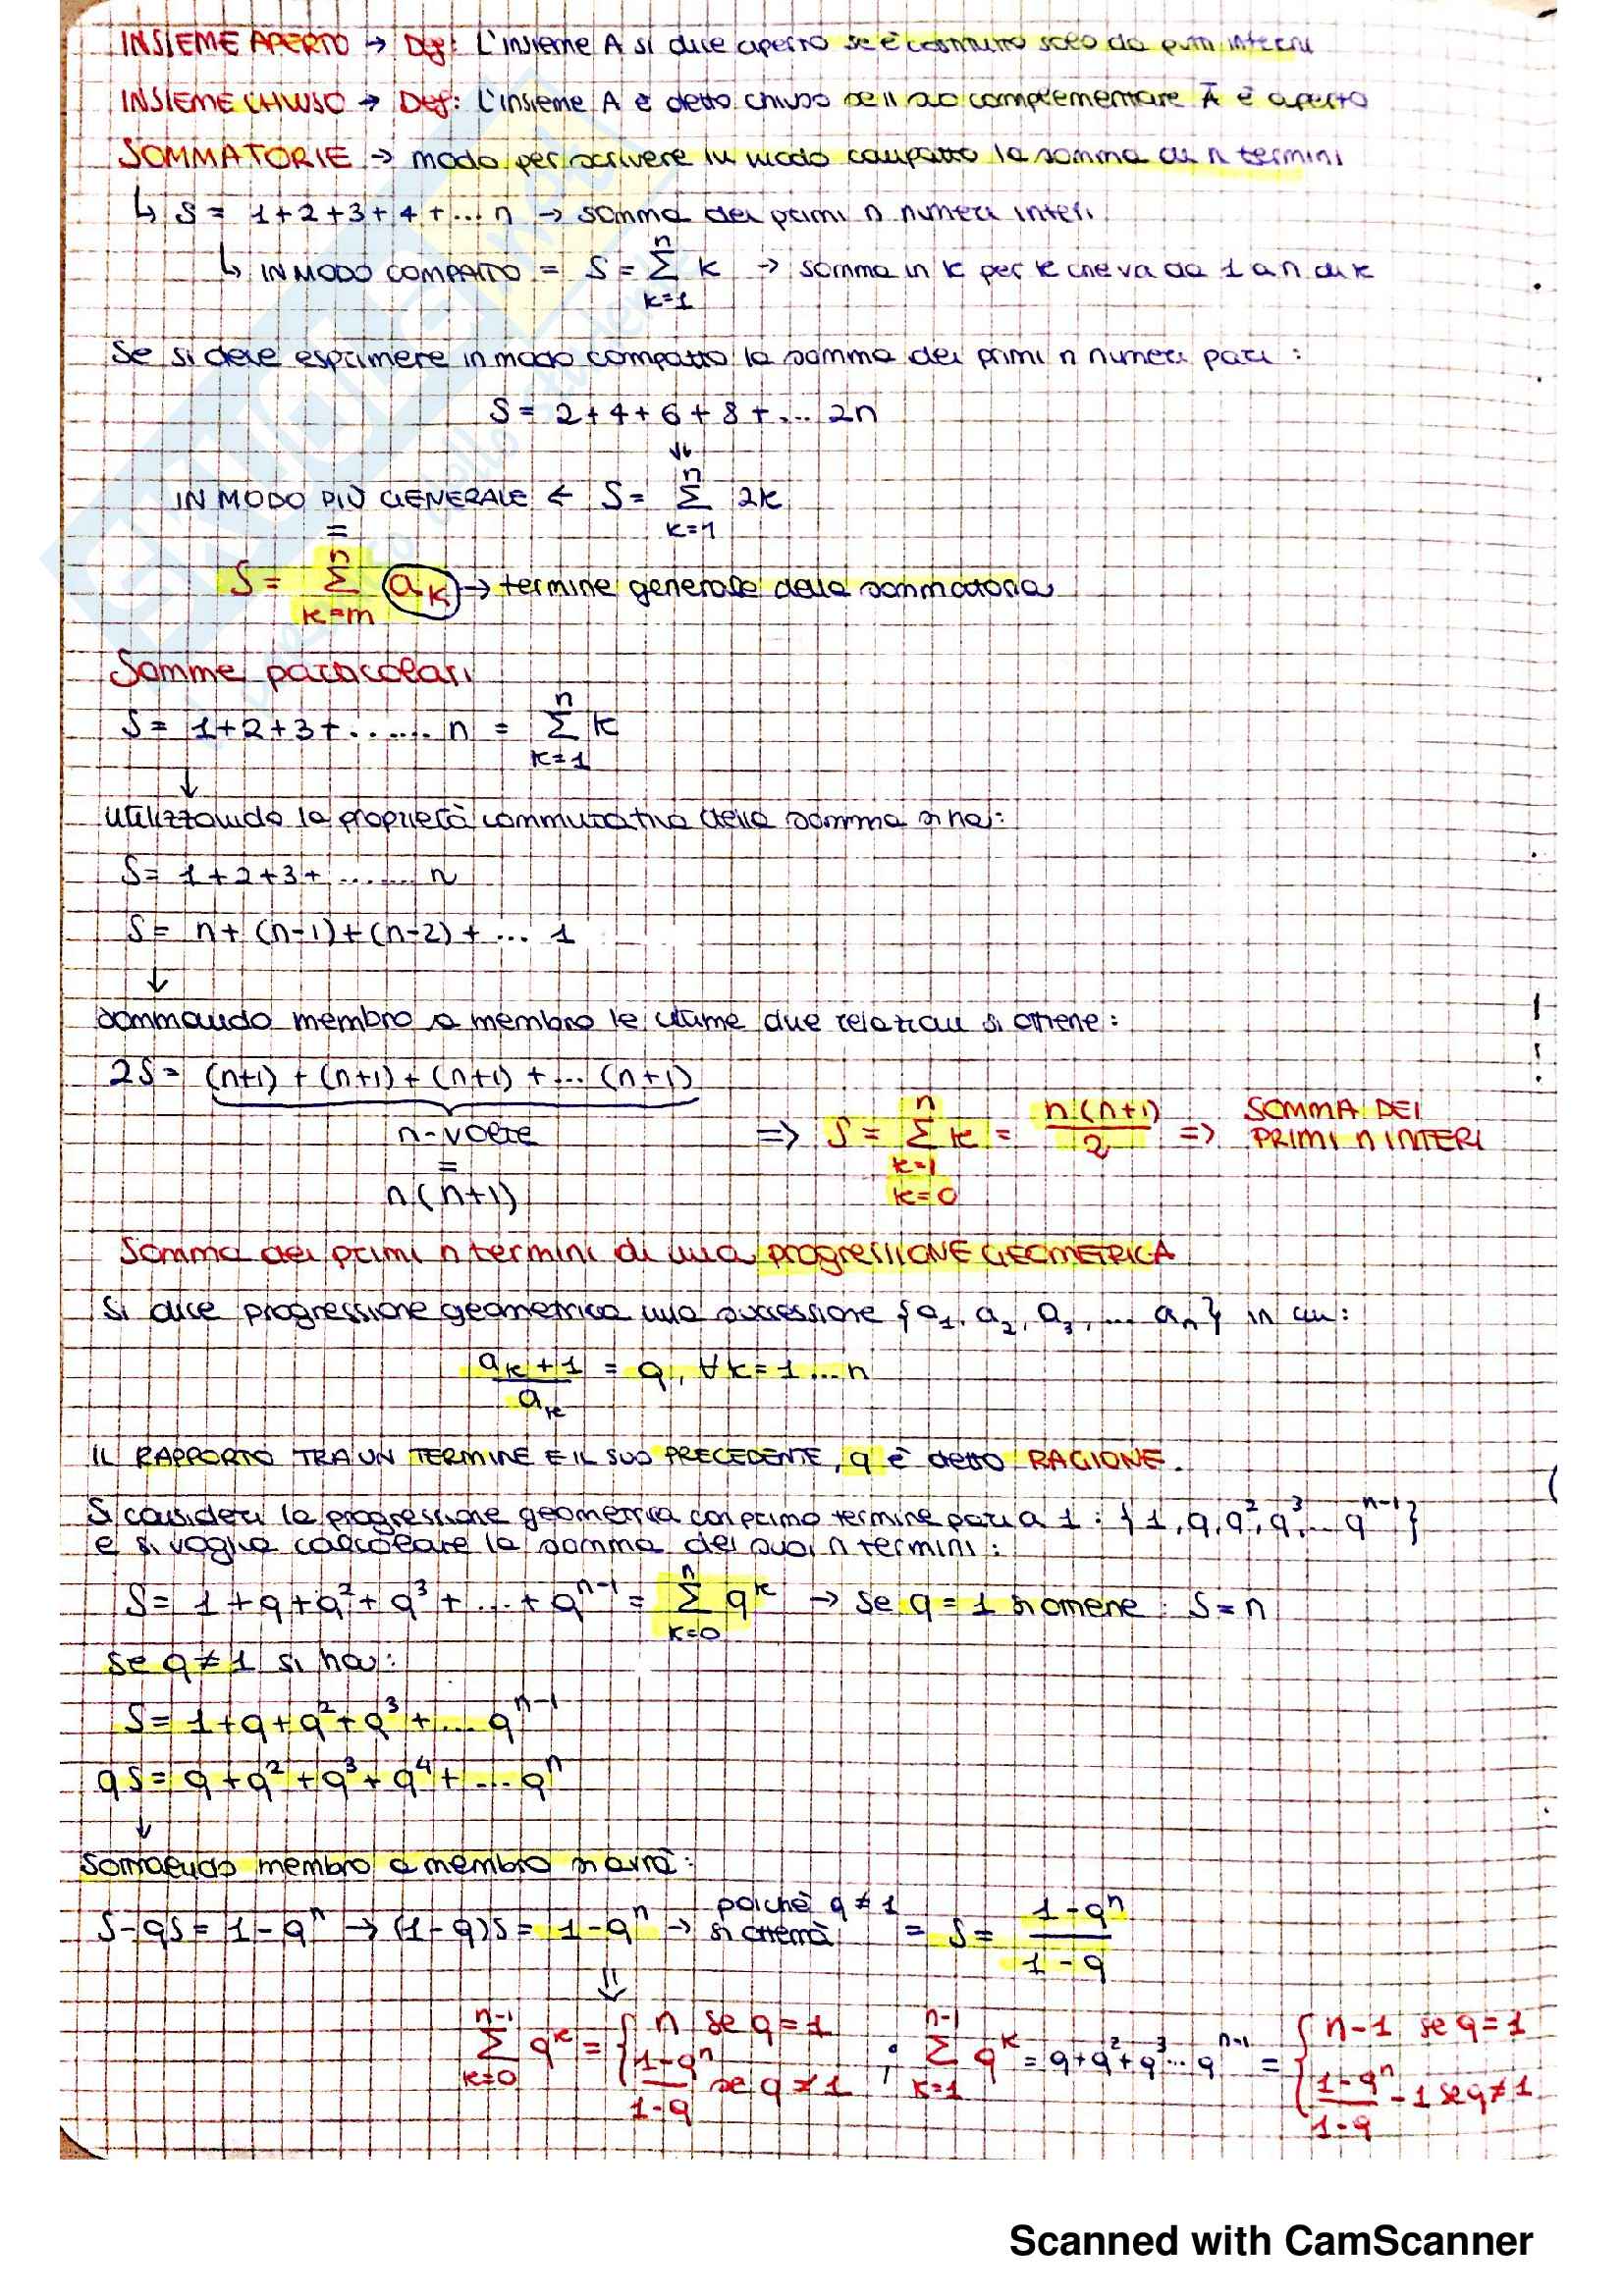 INSIEME APERTO → Def: L'insieme A si dice aperto se è costituito solo da punti interni
INSIEME CHIUSO → Def: L'insieme A è detto chiuso se il suo complementare Ā è aperto
SOMMATORIE → modo per scrivere in modo compatto la somma di n termini
↳ S = 1+2+3+4+... n → somma dei primi n numeri interi
↳ IN MODO COMPATTO = S = ∑_{k=1}^{n} k → somma in k per k che va da 1 a n di k
Se si deve esprimere in modo compatto la somma dei primi n numeri pari :
S = 2+4+6+8+... 2n
↓
IN MODO PIÙ GENERALE ← S = ∑_{k=1}^{n} 2k
=
S = ∑_{k=m}^{n} a_k → termine generale della sommatoria
Somme particolari
S = 1+2+3+....... n = ∑_{k=1}^{n} k
↓
utilizzando la proprietà commutativa della somma si ha:
S = 1+2+3+ ....... n
S = n+(n-1)+(n-2)+ ... 1
↓
sommando membro a membro le ultime due relazioni si ottiene :
2S = (n+1) + (n+1) + (n+1) + ... (n+1)
n-volte
=
n(n+1)
=> S = ∑_{k=1}^{n} k = n(n+1)/2 => SOMMA DEI PRIMI n INTERI
k=0
Somma dei primi n termini di una progressIONE GEOMETRICA
Si dice progressione geometrica una successione {a₁, a₂, a₃, ... aₙ} in cui :
a_k+1 / a_k = q, ∀k = 1...n
IL RAPPORTO TRA UN TERMINE E IL SUO PRECEDENTE, q è detto RAGIONE.
Si consideri la progressione geometrica con primo termine pari a 1 : {1, q, q², q³, ... qⁿ⁻¹}
e si voglia calcolare la somma dei suoi n termini :
S = 1+q+q²+q³+...+qⁿ⁻¹ = ∑_{k=0}^{n} q^k → se q = 1 si ottiene : S = n
se q ≠ 1 si ha :
S = 1+q+q²+q³+... qⁿ⁻¹
qS = q+q²+q³+q⁴+... qⁿ
↓
membro a membro si avrà :
S-qS = 1-qⁿ → (1-q)S = 1-qⁿ → poiché q ≠ 1 si otterrà = S = (1-qⁿ)/(1-q)
⇓
∑_{k=0}^{n-1} q^k = { n se q = 1 ; (1-qⁿ)/(1-q) se q ≠ 1 ; ∑_{k=1}^{n-1} q^k = q+q²+q³... qⁿ⁻¹ = { n-1 se q = 1 ; (1-qⁿ)/(1-q) - 1 se q ≠ 1
Scanned with CamScanner